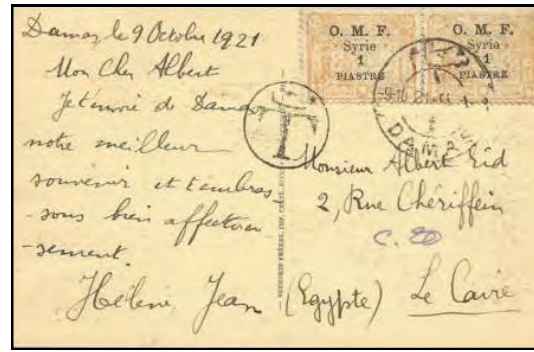 Damas, le 9 Octobre 1921
Mon Cher Albert
Je t'envoie de Damas
notre meilleur
souvenir et t'embras-
-sons bien affectueu
-sement.
Hélène, Jean
O. M. F.
Syrie
1
PIASTRE
O. M. F.
Syrie
1
PIASTRE
T
Monsieur Albert Eid
2, Rue Chériffein
(Egypte) Le Caire